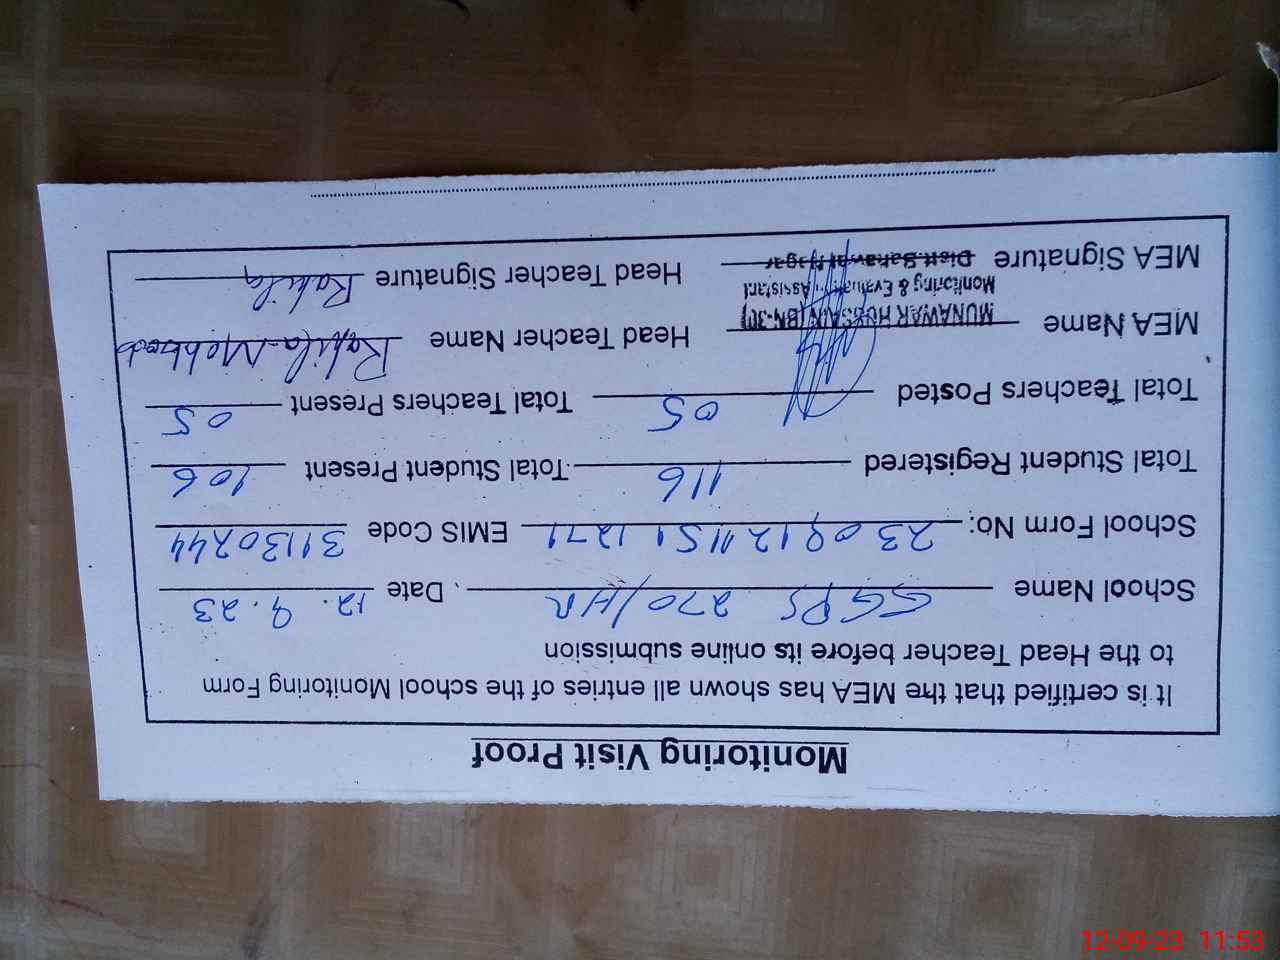 Monitoring Visit Proof
It is certified that the MEA has shown all entries of the school Monitoring Form
to the Head Teacher before its online submission
School Name GGPS 270/HR Date 12.9.23
School Form No: EMIS Code 31130244
Total Student Registered 116 Total Student Present 106
Total Teachers Posted 05 Total Teachers Present 05
MEA Name MUNAWAR HUSSAIN (BN-30) Head Teacher Name Rahila Mehboob
Monitoring & Evaluation Assistant
MEA Signature Distt Bahawal Nagar Head Teacher Signature Rahila
12-09-23 11:53